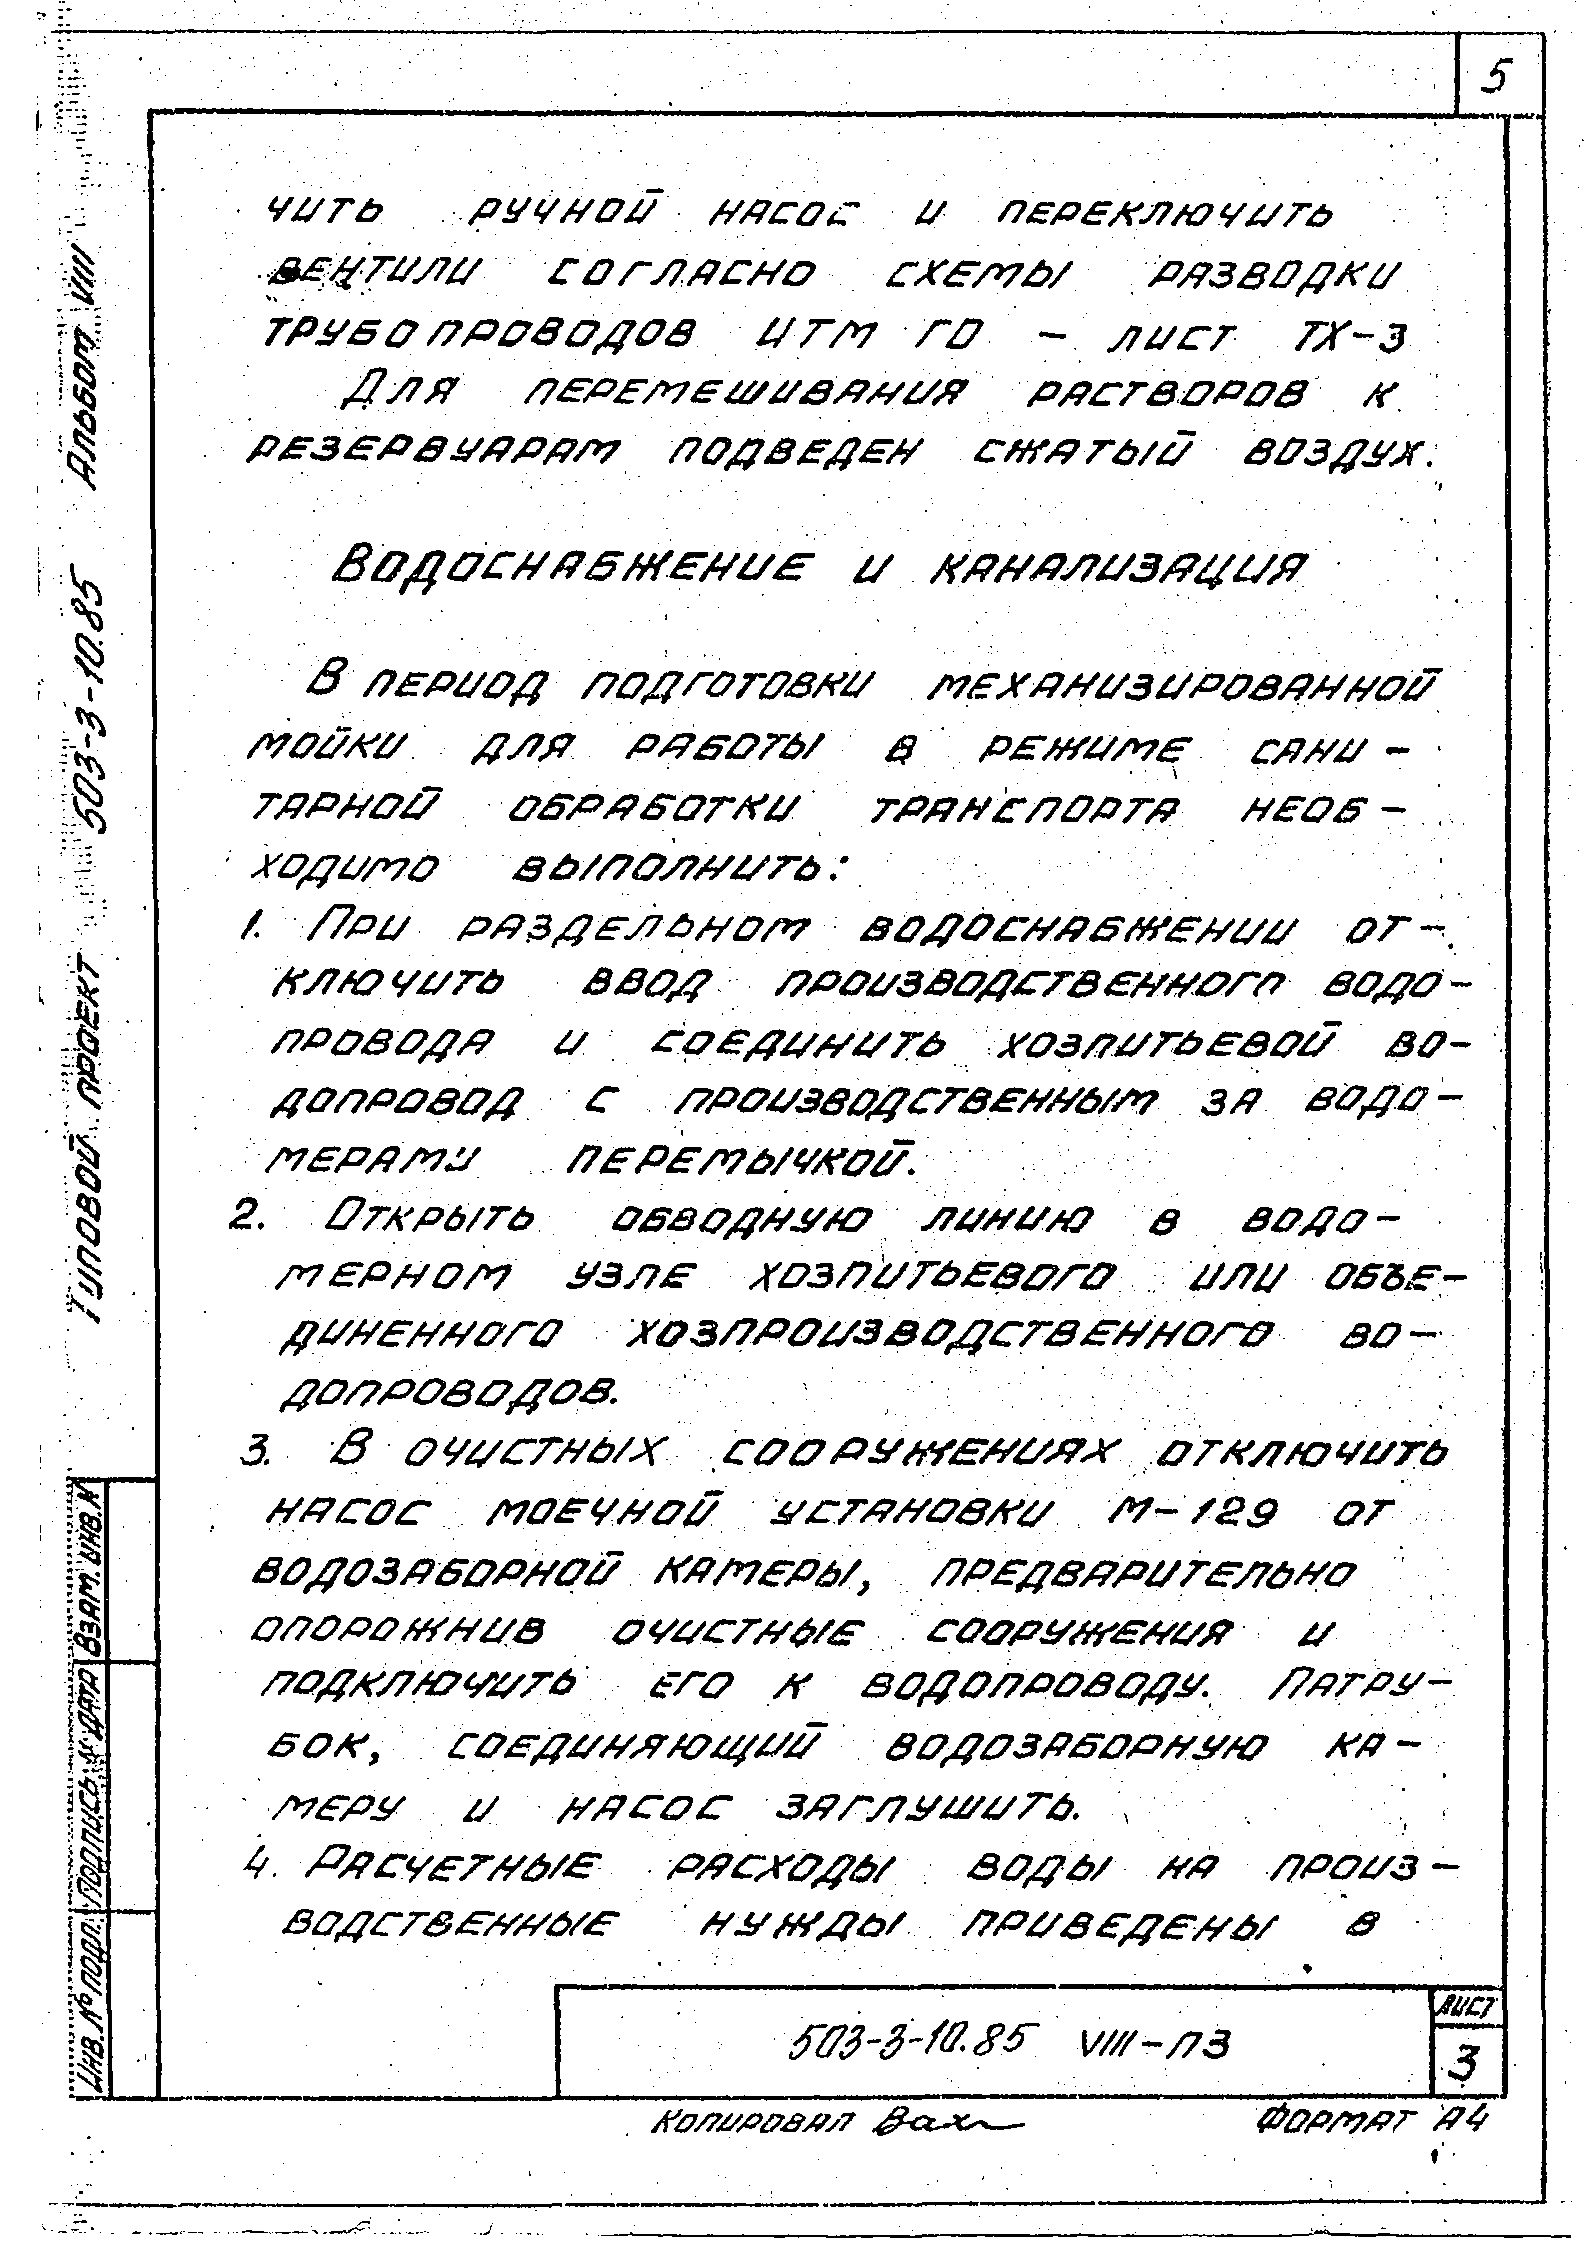 5
чить ручной насос и переключить
вентили согласно схемы разводки
трубопроводов ИТМ ГО – лист ТХ-3
Для перемешивания растворов к
резервуарам подведен сжатый воздух.
Водоснабжение и канализация
В период подготовки механизированной
мойки для работы в режиме сани-
тарной обработки транспорта необ-
ходимо выполнить:
1. При раздельном водоснабжении от-
ключить ввод производственного водо-
провода и соединить хозпитьевой во-
допровод с производственным за водо-
мерами перемычкой.
2. Открыть обводную линию в водо-
мерном узле хозпитьевого или объе-
диненного хозпроизводственного во-
допроводов.
3. В очистных сооружениях отключить
насос моечной установки М-129 от
водозаборной камеры, предварительно
опорожнив очистные сооружения и
подключить его к водопроводу. Патру-
бок, соединяющий водозаборную ка-
меру и насос заглушить.
4. Расчетные расходы воды на произ-
водственные нужды приведены в
503-3-10.85 VIII-ПЗ
Лист
3
Копировал Вах
Формат А4
Типовой проект 503-3-10.85 Альбом VIII
Инв. № подл. Подпись и дата Взам. инв. №